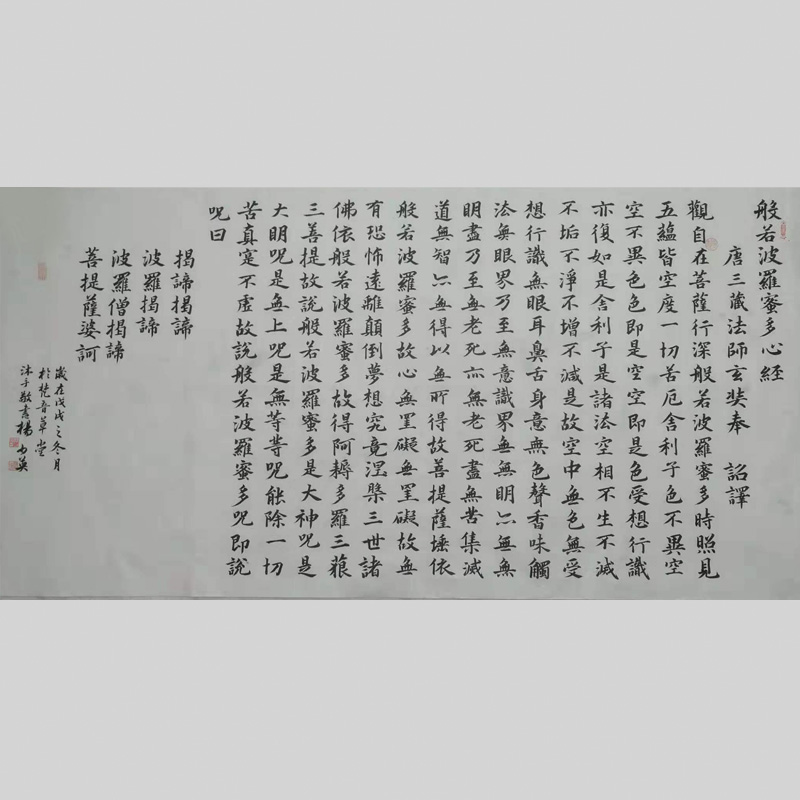 般若波羅蜜多心經
唐三藏法師玄奘奉 詔譯
觀自在菩薩行深般若波羅蜜多時照見
五蘊皆空度一切苦厄舍利子色不異空
空不異色色即是空空即是色受想行識
亦復如是舍利子是諸法空相不生不滅
不垢不淨不增不減是故空中無色無受
想行識無眼耳鼻舌身意無色聲香味觸
法無眼界乃至無意識界無無明亦無無
明盡乃至無老死亦無老死盡無苦集滅
道無智亦無得以無所得故菩提薩埵依
般若波羅蜜多故心無罣礙無罣礙故無
有恐怖遠離顛倒夢想究竟涅槃三世諸
佛依般若波羅蜜多故得阿耨多羅三藐
三菩提故說般若波羅蜜多是大神呪是
大明呪是無上呪是無等等呪能除一切
苦真寔不虛故說般若波羅蜜多呪即說
呪曰
揭諦揭諦
波羅揭諦
波羅僧揭諦
菩提薩婆訶
歲在戊戌之冬月
於梵音草堂
沐手敬書楊英